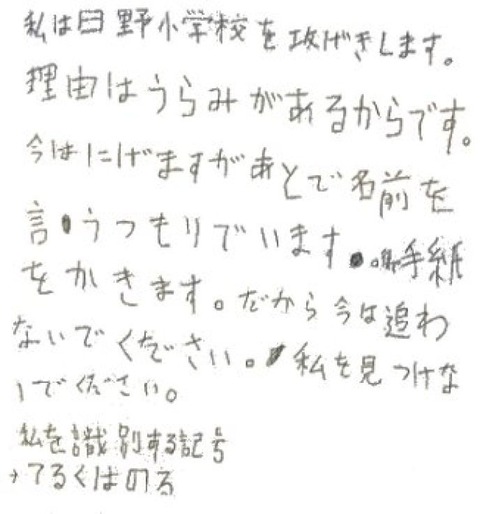 私は日野小学校を攻げきします。
理由はうらみがあるからです。
今はにげますがあとで名前を
言うつもりでいます。手紙
をかきます。だから今は追わ
ないでください。私を見つけな
いでください。
私を識別する記号
→てるくはのる